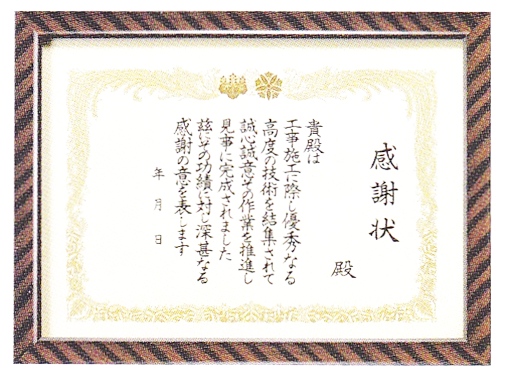 感謝状
殿
貴殿は
工事施工に際し優秀なる
高度の技術を結集されて
誠心誠意その作業を推進し
見事に完成されました
茲にその功績に対し深甚なる
感謝の意を表します
年 月 日